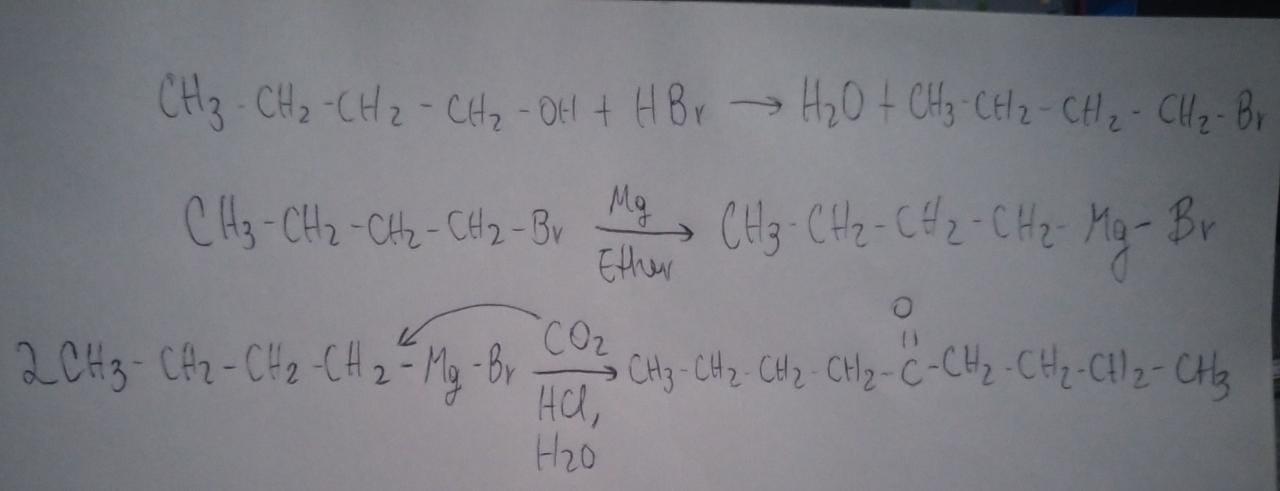 CH3-CH2-CH2-CH2-OH + HBr → H2O + CH3-CH2-CH2-CH2-Br
CH3-CH2-CH2-CH2-Br Mg → CH3-CH2-CH2-CH2-Mg-Br
Ether
O
2CH3-CH2-CH2-CH2-Mg-Br CO2 → CH3-CH2-CH2-CH2-C-CH2-CH2-CH2-CH3
HCl,
H2O